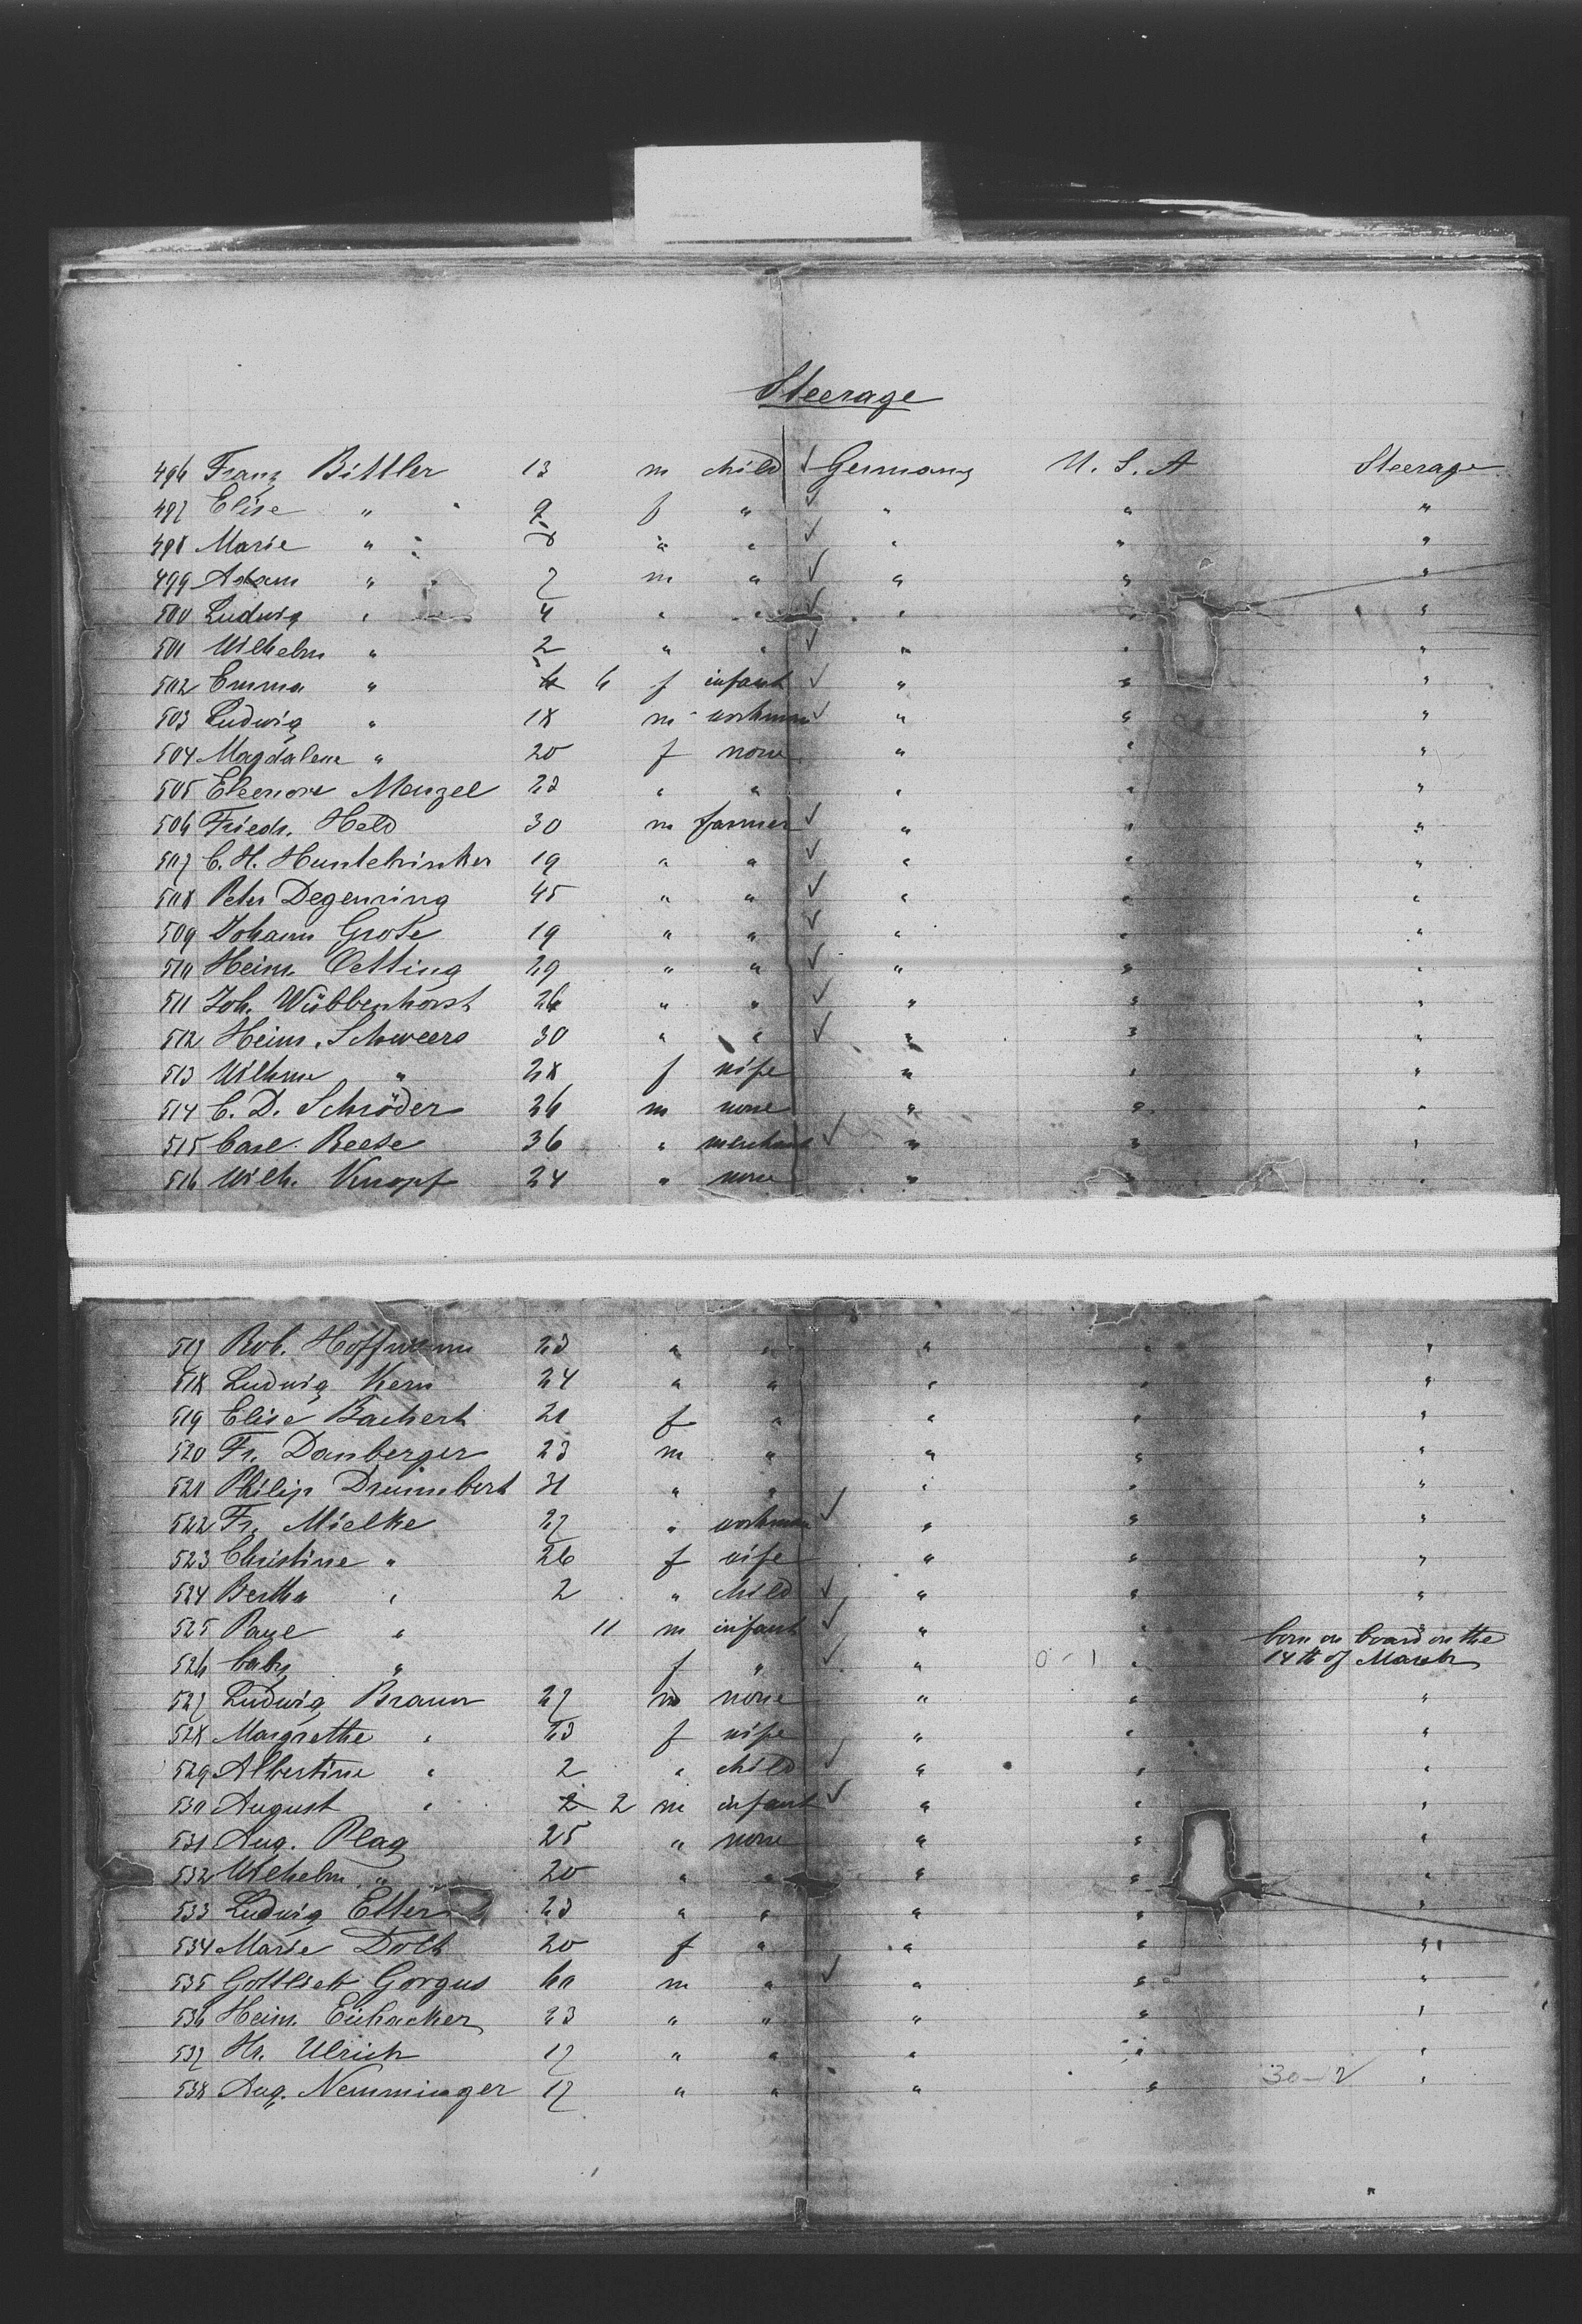 Steerage
496 Franz Bittler 13 m child ✓ Germany U. S. A Steerage
497 Elise " 9 f " ✓ " " "
498 Marie " 8 " " ✓ " " "
499 Adam " 7 m " ✓ " " "
500 Ludwig " 4 " " ✓ " " "
501 Wilhelm " 2 " " ✓ " " "
502 Emma " 6 f infant ✓ " " "
503 Ludwig " 18 m workman ✓ " " "
504 Magdalene " 20 f none " " "
505 Eleonore Menzel 23 " " " " "
506 Friedr. Held 30 m farmer ✓ " " "
507 C. H. Huntehinker 19 " " ✓ " " "
508 Peter Degenring 45 " " ✓ " " "
509 Johann Grote 19 " " ✓ " " "
510 Heinr. Oetting 29 " " ✓ " " "
511 Joh. Wübbenhorst 26 " " ✓ " " "
512 Heinr. Schweers 30 " " ✓ " " "
513 Wilhme " 28 f wife " " "
514 C. D. Schröder 26 m none " " "
515 Carl Reese 36 " merchant ✓ " " "
516 Wilh. Knopf 24 " none " " "
517 Rob. Hoffmann 23 " " " " "
518 Ludwig Kern 24 " " " " "
519 Elise Bachert 21 f " " " "
520 Fr. Danberger 23 m " " " "
521 Philip 31 " " " " "
522 Fr. Mielke 27 " workman ✓ " " "
523 Christine " 26 f wife " " "
524 Bertha " 2 " child ✓ " " "
525 Paul " 11 m infant ✓ " " "
526 baby " f " ✓ " 0-1 " born on board on the
14th of March
527 Ludwig Braun 27 m none " " "
528 Margrethe " 23 f wife " " "
529 Albertine " 2 " child ✓ " " "
530 August " 2 2 m infant ✓ " " "
531 Aug. Plag 25 " none " " "
532 Wilhelm " 20 " " " " "
533 Ludwig Etter 23 " " " " "
534 Marie Dolt 20 f " " " "
535 Gottlieb Gorgus 60 m " ✓ " " "
536 Heinr. Eichacker 23 " " " " "
537 Hr. Ulrich 17 " " " " "
538 Aug. Nemminger 17 " " " " 30-12 "